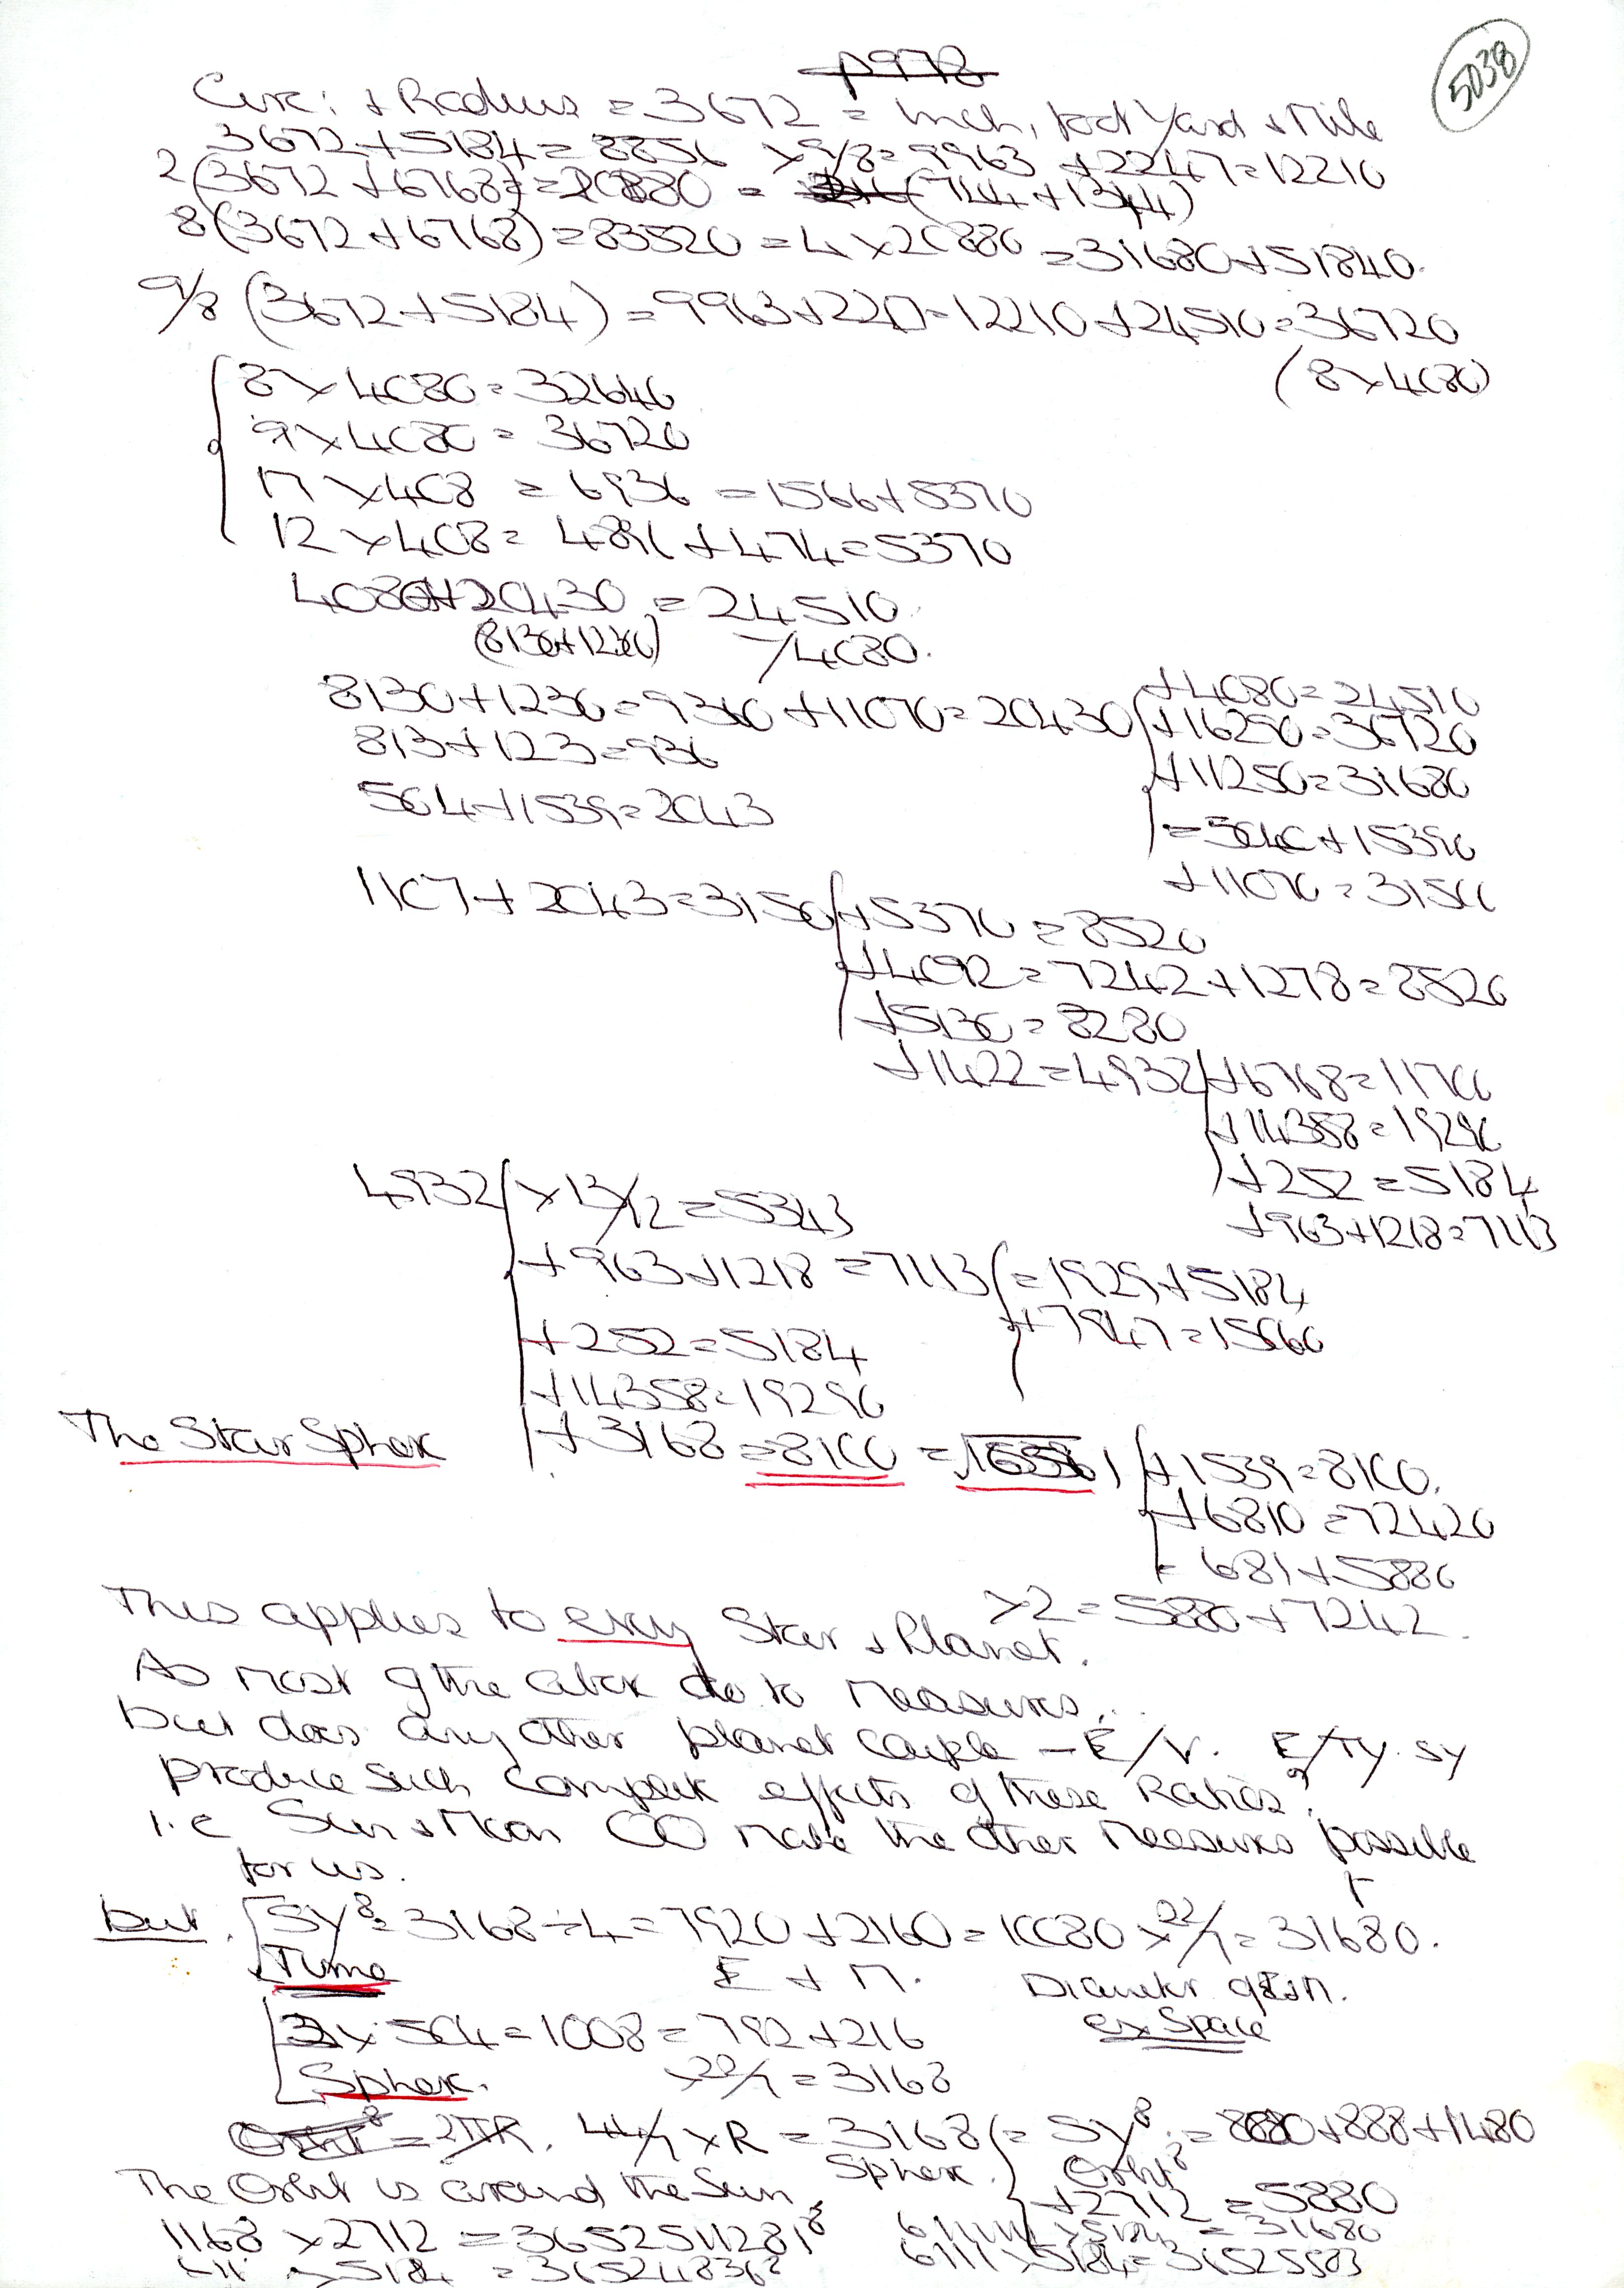 5038
p978
Circ: + Radius = 3672 = Inch, foot Yard + Mile
3672+5184=8856 x9/8=9963 +2247=12210
2(3672+6768)=20880 = (744+1344)
8(3672+6768)=83520=4x20880 =31680+51840.
9/8(3672+5184)=9963+2247=12210+24510=36720
(8x4080)
8x4080=32640
9x4080=36720
17x408=6936=1566+5370
12x408=4896+474=5370
4080+20430=24510.
(8130+12300) -/4080.
8130+1230=9360+11070=20430 +4080=24510
+16290=36720
813+123=936
+11250=31680
504+1539=2043
=5040+15390
+11070=31500
1107+2043=3150 +5370=8520
+4092=7242+1278=8520
+5130=8280
+1422=4932 +6768=11700
+14358=19290
+252=5184
+963+1218=7113
4932 x13/12=5343
+963+1218=7113 =1929+5184
+7947=15060
+252=5184
+14358=19290
The Star Sphere +3168=8100 =√6561 +1539=8100.
+6810=72420
=681+5880
x2=5880+7242.
This applies to every Star + Planet.
As most of the above do to measures..
but does any other planet couple - E/V. E/Ty. SY
produce such complex effects of these Ratios?
i.e Sun + Moon OO make the other measures possible
for us.
But. SY°=3168÷4=7920+2160=10080x22/7=31680.
Time E + M. Diameter of E+M.
ex Space
2x504=1008=792+216
Sphere. x22/7=3168
Orbit° = 2πR. 44/7xR=3168 = SY°=880+888+1480
Sphere. Orbit°
The Orbit is around the Sun, +2712=5880
1168x2712=3652511281° 6111111x5184=31680
x5184=365248368 6111x5184=36525583